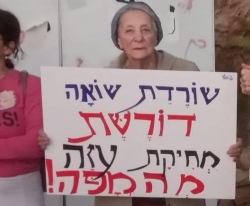 שורדת שואה
דורשת
מחיקת עזה
מהמפה!